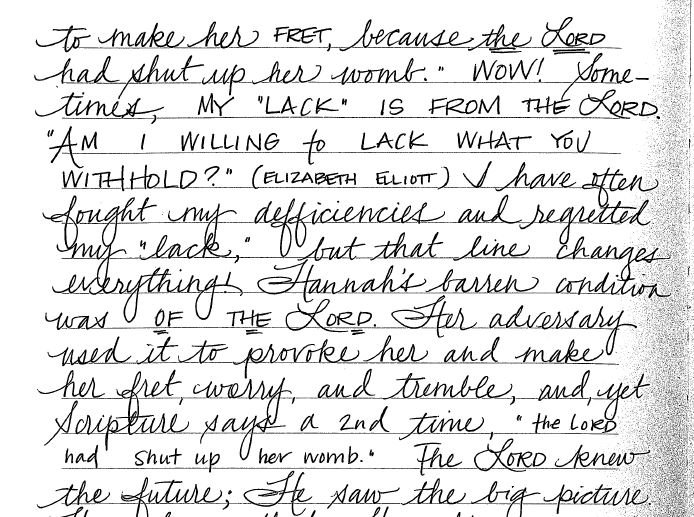 to make her FRET, because the LORD
had shut up her womb." WOW! Some-
times, MY "LACK" IS FROM THE LORD.
"AM I WILLING to LACK WHAT YOU
WITHHOLD?" (ELIZABETH ELLIOTT) I have often
fought my defficiencies and regretted
my "lack," but that line changes
everything! Hannah's barren condition
was OF THE LORD. Her adversary
used it to provoke her and make
her fret, worry, and tremble, and, yet
Scripture says a 2nd time, "the LORD
had shut up her womb." The LORD knew
the future; He saw the big picture.